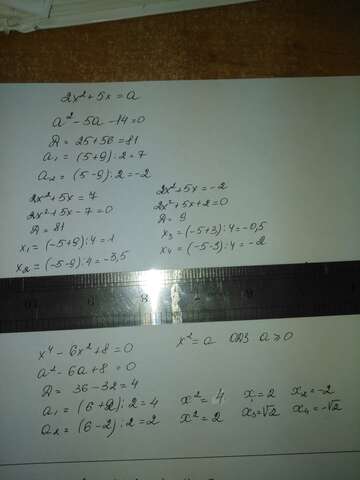 2x² + 5x = a
a² - 5a - 14 = 0
D = 25 + 56 = 81
a₁ = (5 + 9) : 2 = 7
a₂ = (5 - 9) : 2 = -2
2x² + 5x = 7
2x² + 5x - 7 = 0
D = 81
x₁ = (-5 + 9) : 4 = 1
x₂ = (-5 - 9) : 4 = -3,5
2x² + 5x = -2
2x² + 5x + 2 = 0
D = 9
x₃ = (-5 + 3) : 4 = -0,5
x₄ = (-5 - 3) : 4 = -2
x⁴ - 6x² + 8 = 0
x² = a ОДЗ a ≥ 0
a² - 6a + 8 = 0
D = 36 - 32 = 4
a₁ = (6 + 2) : 2 = 4
x² = 4 x₁ = 2 x₂ = -2
a₂ = (6 - 2) : 2 = 2
x² = 2 x₃ = √2 x₄ = -√2